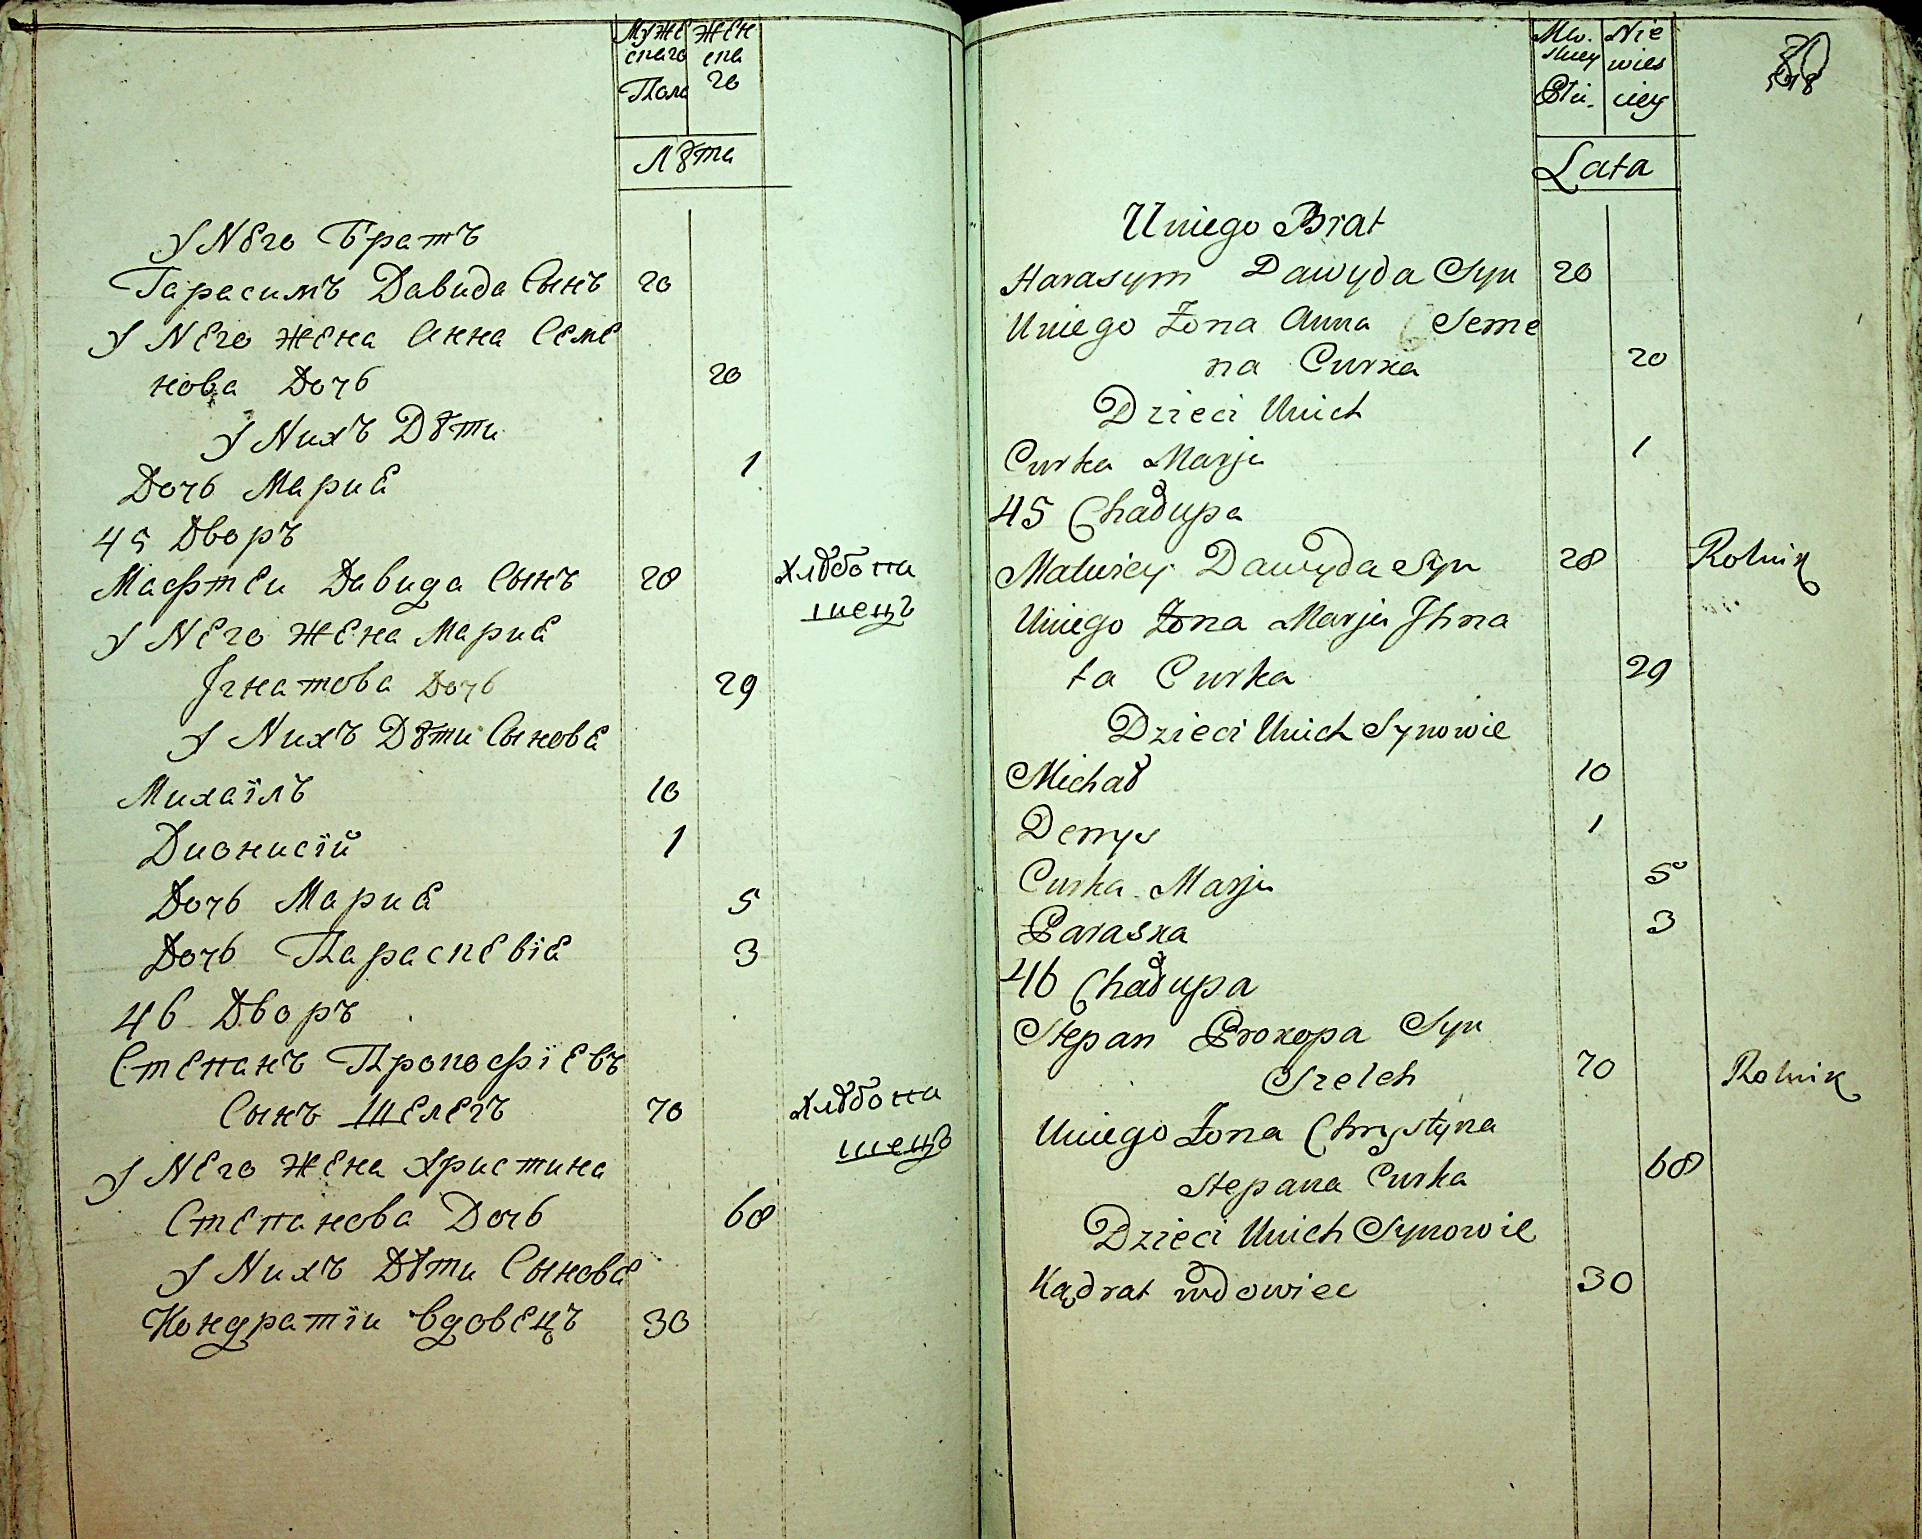 Муже Жен
скаго ска
Пола го
Лѣта
У Него Братъ
Гарасимъ Давида Сынъ 20
У Него Жена Анна Семе
нова Дочь 20
У Нихъ Дѣти
Дочь Мариѐ 1
45 Дворъ
Мафтеи Давида Сынъ 28 хлѣбопа
шецъ
У Него Жена Марие
Iгнатова Дочь 29
У Нихъ Дѣти Сынове
Михаїлъ 10
Дионисїй 1
Дочь Марие 5
Дочь Параскевіе 3
46 Дворъ
Степанъ Прокофїевъ
Сынъ Шелегъ 70 хлѣбопа
шецъ
У Него Жена Христина
Степанова Дочь 68
У Нихъ Дѣти Сынове
Кондратїи вдовецъ 30
Mę. Nie
skiey wies
Płci. ciey
Lata
U niego Brat
Harasym Dawyda Syn 20
U niego Żona Anna Seme
na Curka 20
Dzieci U nich
Curka Marja 1
45 Chałupa
Matwiey Dawyda Syn 28 Rolnik
U niego Żona Marja Ihna
ta Curka 29
Dzieci U nich Synowie
Michał 10
Denys 1
Curka Marja 5
Paraska 3
46 Chałupa
Stepan Prokopa Syn
Szeleh 70 Rolnik
U niego Żona Chrystyna
Stepana Curka 68
Dzieci U nich Synowie
Kądrat wdowiec 30